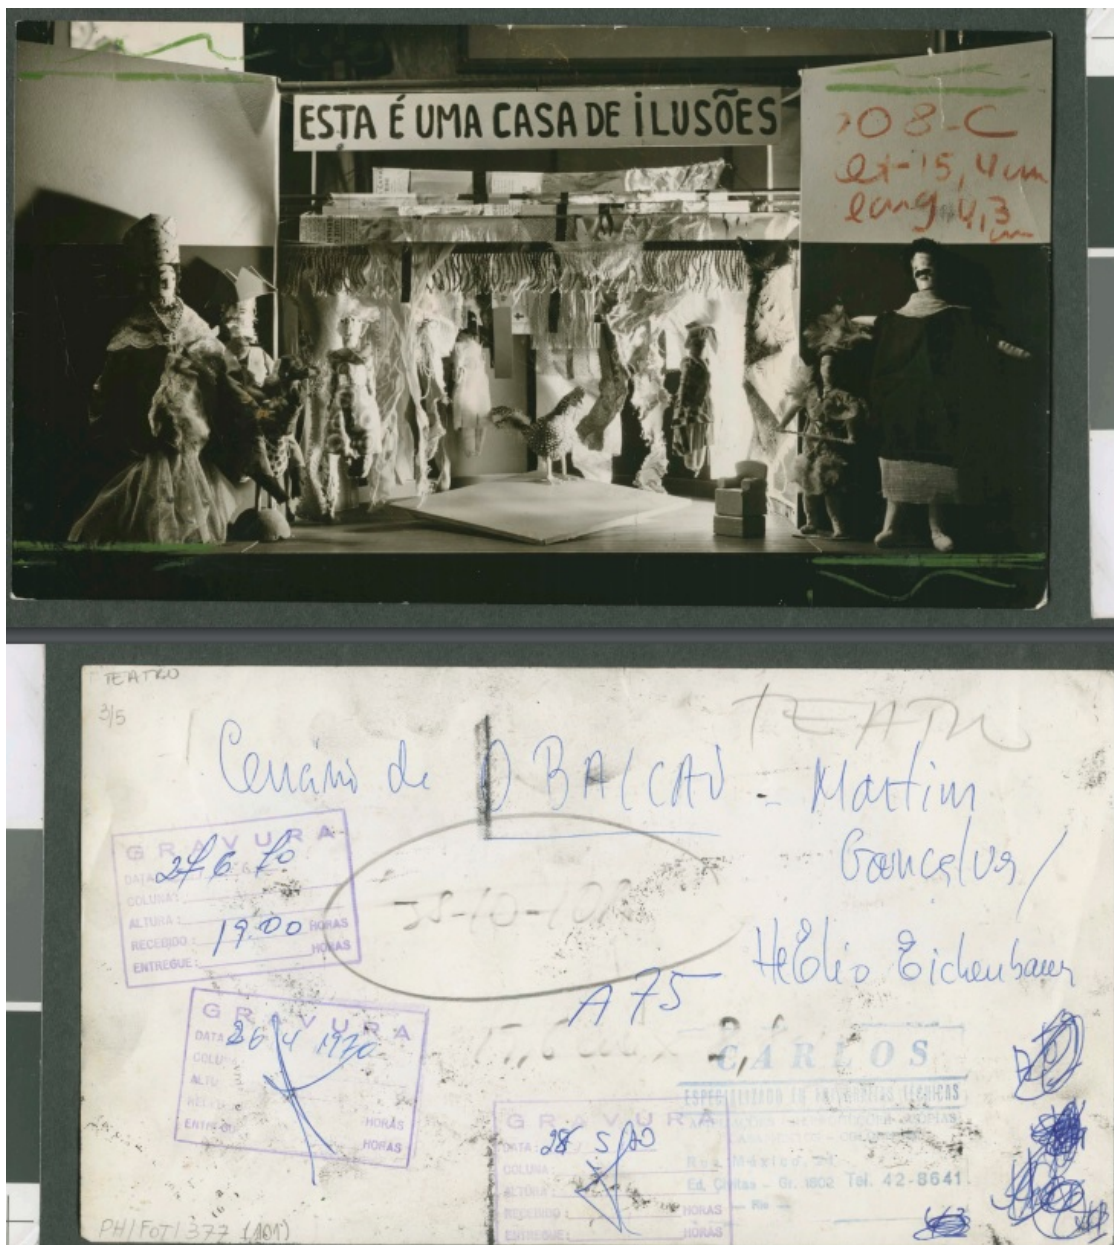 ESTA É UMA CASA DE iLUSÕES
108-C
15,4 cm
4,3
TEATRO
3/5
TEATRO
Cenário de O BALCAO - Martim
Goncalves /
HElio Eichenbauer
GRAVURA
DATA 27 6 70
COLUNAS:
ALTURA:
RECEBIDO: 19:00 HORAS
ENTREGUE: HORAS
A 75
GRAVURA
DATA 26 4 1970
COLU
ALTU
HORAS
ENTREGUE HORAS
CARLOS
ESPECIALIZADO EM FOTOGRAFIAS TÉCNICAS
CÓPIAS
Rua México, 21
Ed. Civitas - Gr. 1802 Tel. 42-8641
- Rio -
GRAVURA
DATA: 28 5
COLUNA:
ALTURA:
RECEBIDO: HORAS
ENTREGUE: HORAS
PH/FOT/377 (101)